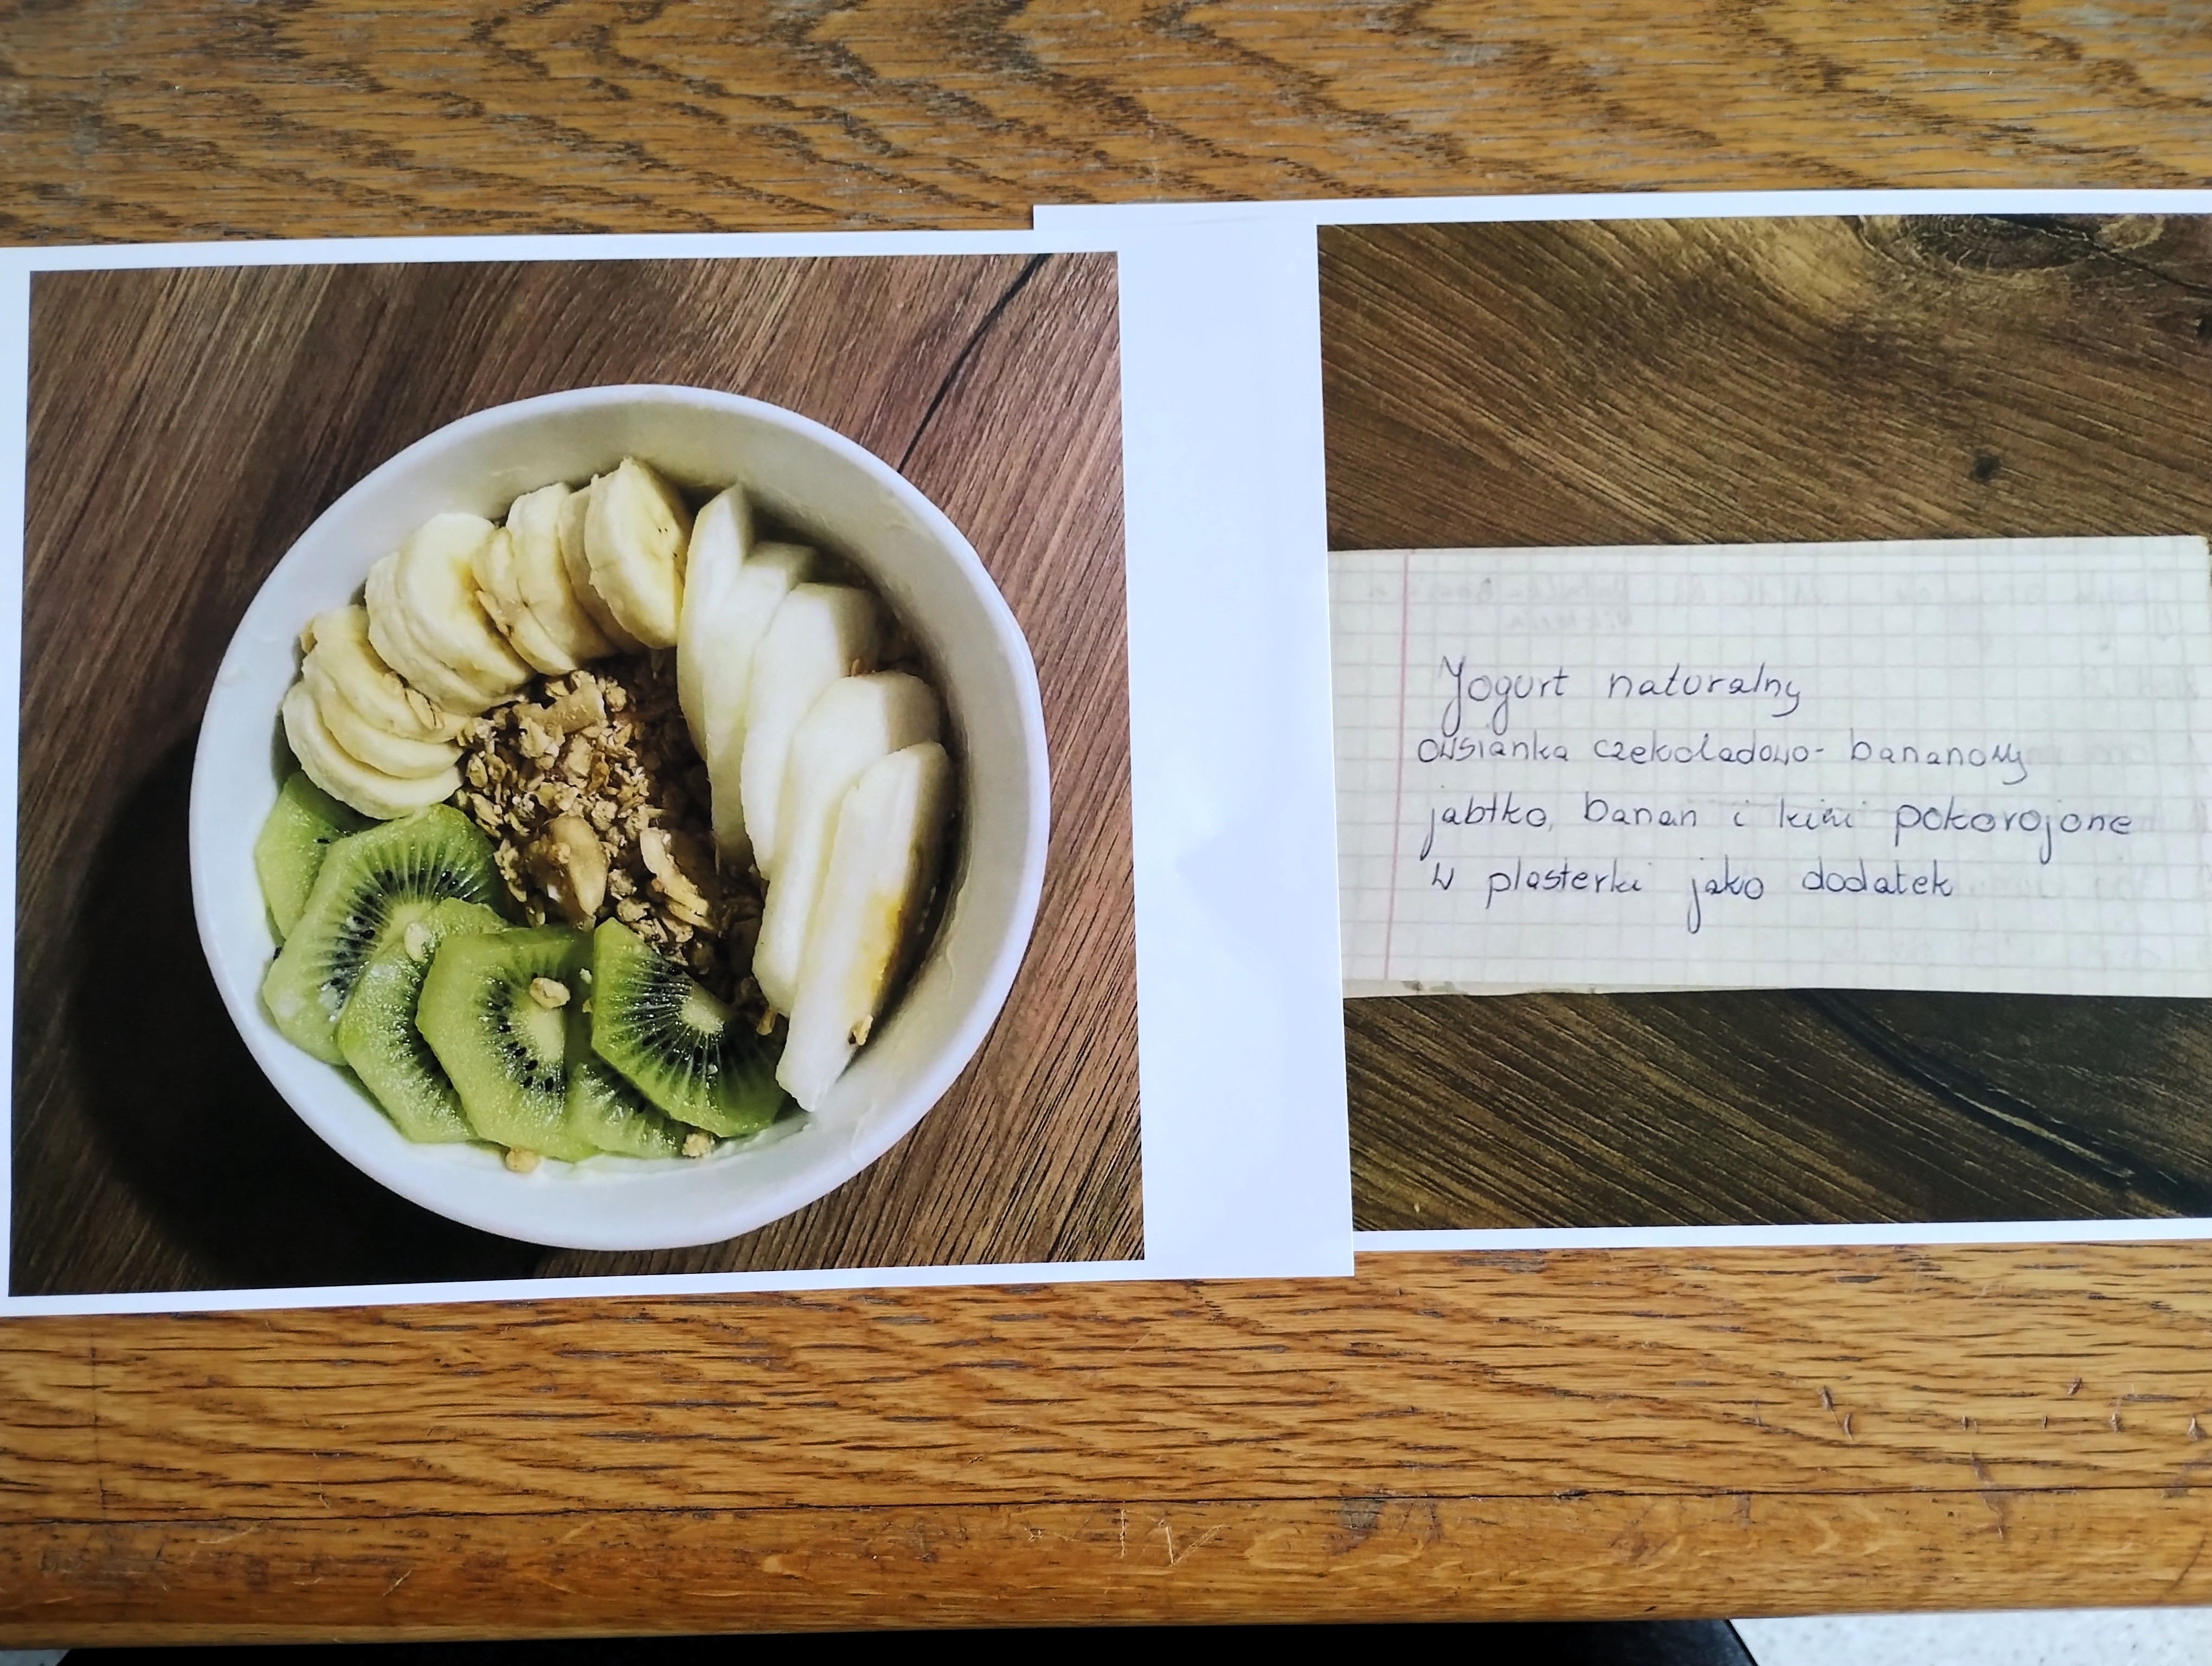 Yogurt naturalny
owsianka czekoladowo-bananowy
jabłko, banan i kiwi pokorojone
w plasterki jako dodatek